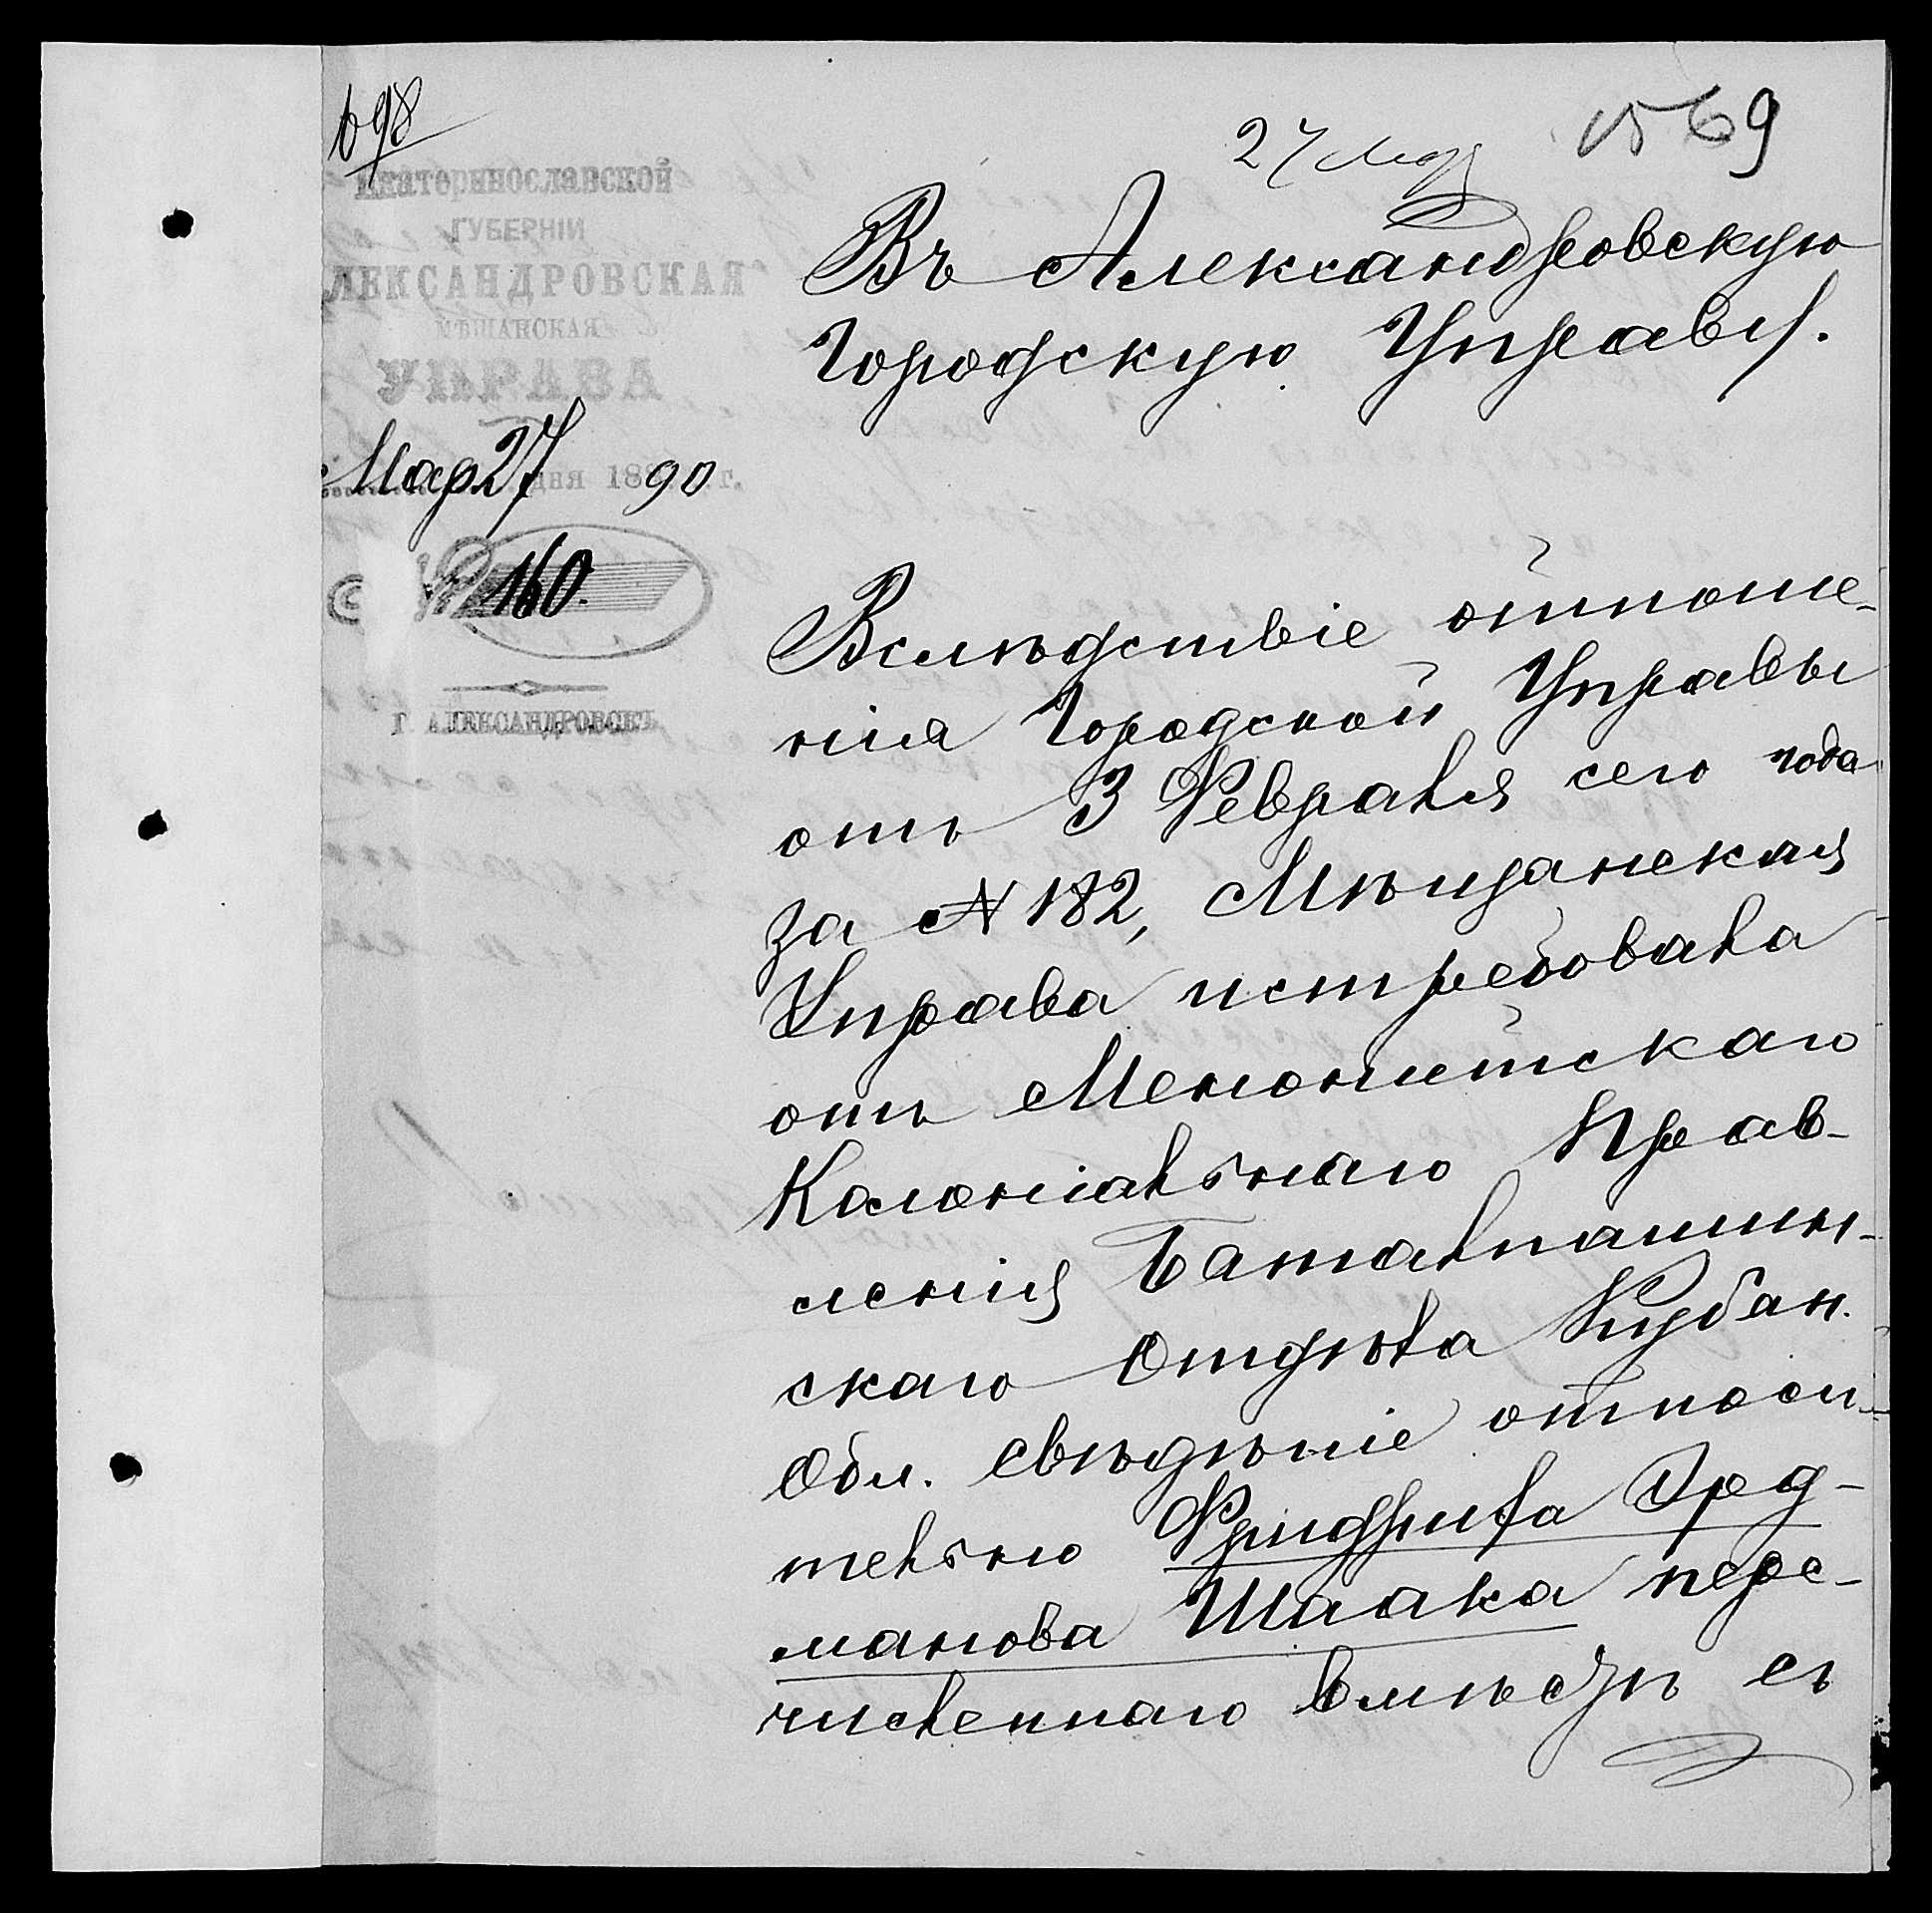 698
27 Мар
69
Екатеринославской
ГУБЕРНІИ
АЛЕКСАНДРОВСКАЯ
МѢЩАНСКАЯ
УПРАВА
Мар 27 дня 1890 г.
№ 160.
Г. АЛЕКСАНДРОВСКЪ
Въ Александровскую
Городскую Управу.
Вслѣдствіе отноше-
нія Городской Управы
отъ 3 Февраля сего года
за № 182, Мѣщанская
Управа истребовала
отъ Менонитскаго
Калоніальнаго Прав-
ленія Баталпашин-
скаго Отдѣла Кубан.
Обл. свѣдѣніе относи-
тельно Фридриха Эрд-
манова Шаака пере-
численнаго вмѣстѣ съ